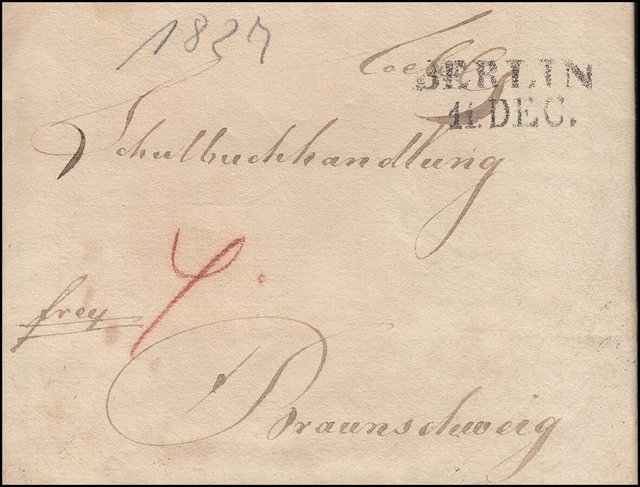 1827
Loebl.
BERLIN
11.DEC.
Schulbuchhandlung
frey
Braunschweig